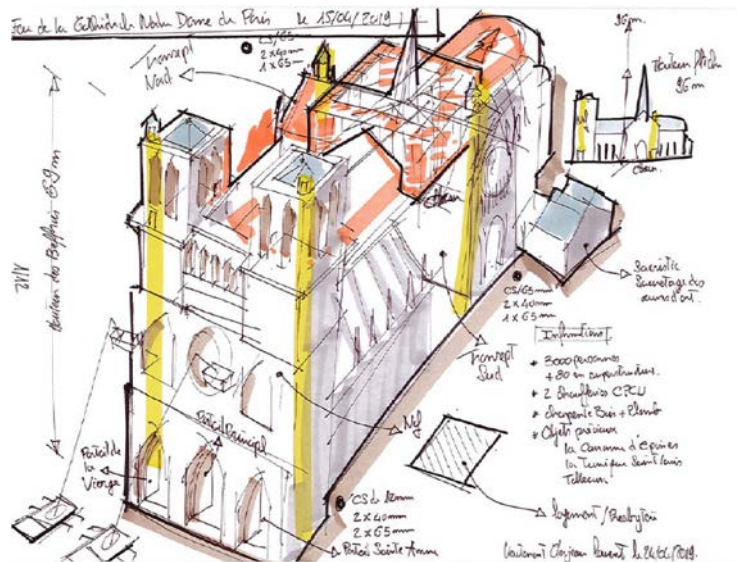 Feu de la Cathédrale Notre Dame de Paris le 15/04/2019
96m.
CS/65
2x40mm
1x65mm
Transept
Nord
96 m
Chœur
hauteur des Beffrois 69m
Sacristie
Sauvetage des
œuvres d'art.
CS/65mm
2x40mm
1x65mm
Transept
Sud
Informations
* 3000 personnes
+80 en superstructure.
* 2 chaufferies CPCU
* charpente Bois + Plomb
* Objets précieux
la Couronne d'Epines
la Tunique Saint Louis
Nef
Portail Principal
Portail de
la
Vierge
CS de
2x40mm
2x65mm
Portail Sainte Anne
logement / Presbytère
Lieutenant Laurent le 24/04/2019.